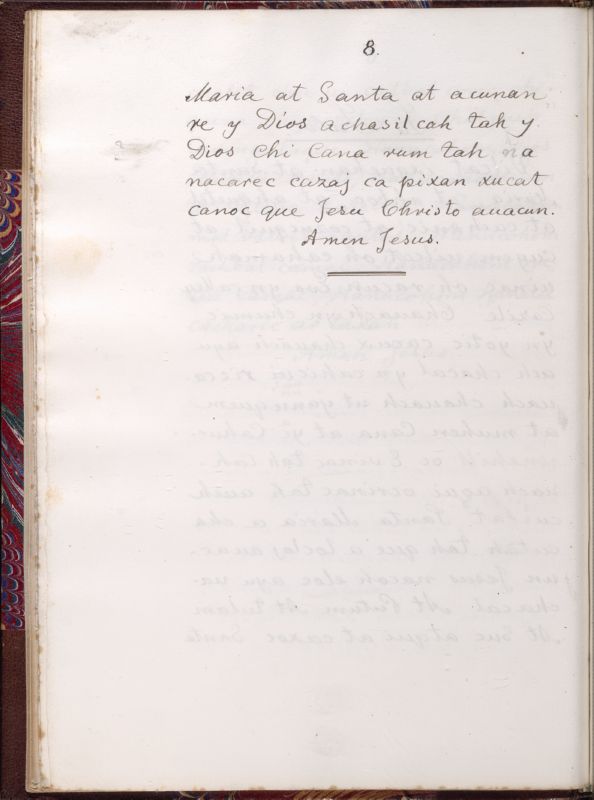 8.
Maria at Santa at acunan
re y Dios achasil cah tah y
Dios Chi Cana rum tah na
nacarec cazaj ca pixan xucat
canoc que Jesu Christo auacun.
Amen Jesus.